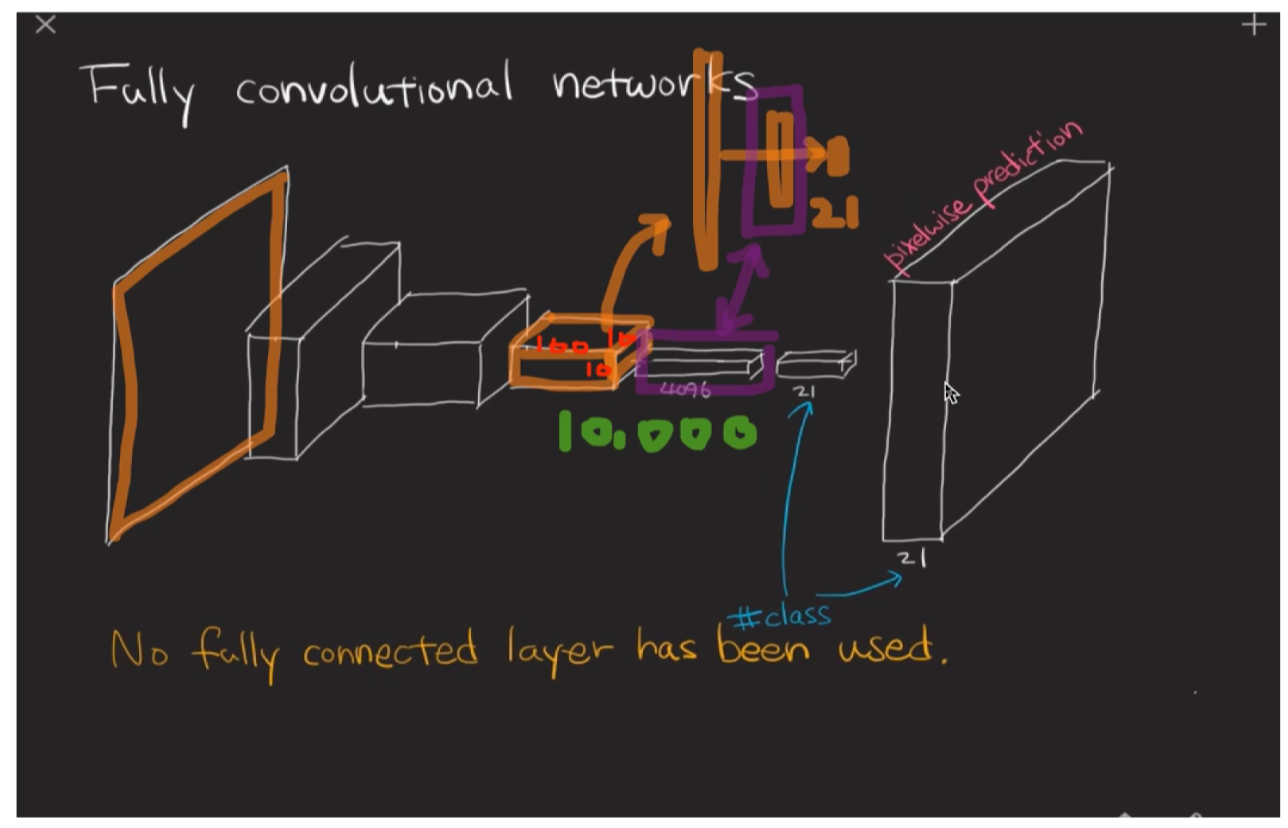 Fully convolutional networks
21
pixelwise prediction
100
10
10
4096
21
10,000
21
#class
No fully connected layer has been used.